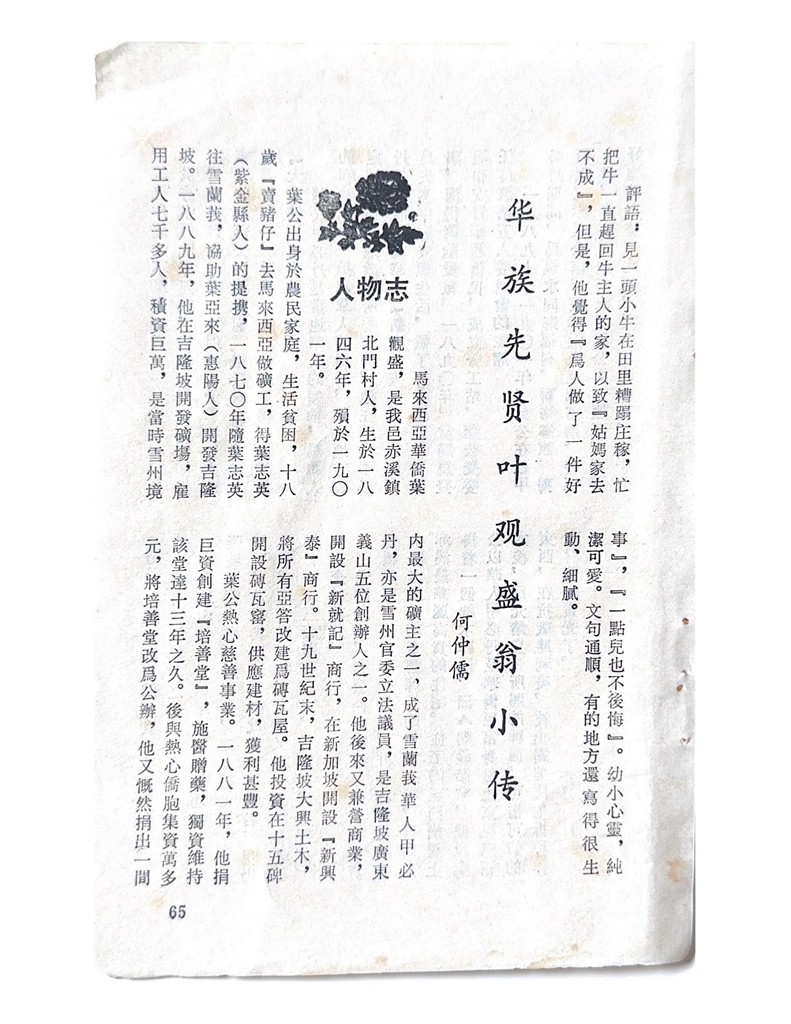 評語：見一頭小牛在田里糟蹋庄稼，忙
把牛一直趕回牛主人的家，以致『姑媽家去
不成』，但是，他覺得『爲人做了一件好
事』，『一點兒也不後悔』。幼小心靈，純
潔可愛。文句通順，有的地方還寫得很生
動、細膩。
华族先贤叶观盛翁小传
何仲儒
人物志
馬來西亞華僑葉
觀盛，是我邑赤溪鎮
北門村人，生於一八
四六年，殞於一九〇
一年。
葉公出身於農民家庭，生活貧困，十八
歲『賣豬仔』去馬來西亞做礦工，得葉志英
（紫金縣人）的提携，一八七〇年隨葉志英
往雪蘭莪，協助葉亞來（惠陽人）開發吉隆
坡。一八八九年，他在吉隆坡開發礦場，雇
用工人七千多人，積資巨萬，是當時雪州境
内最大的礦主之一，成了雪蘭莪華人甲必
丹，亦是雪州官委立法議員，是吉隆坡廣東
義山五位創辦人之一。他後來又兼營商業，
開設『新就記』商行，在新加坡開設『新興
泰』商行。十九世紀末，吉隆坡大興土木，
將所有亞答改建爲磚瓦屋。他投資在十五碑
開設磚瓦窰，供應建材，獲利甚豐。
葉公熱心慈善事業。一八八一年，他捐
巨資創建『培善堂』，施醫贈藥，獨資維持
該堂達十三年之久。後與熱心僑胞集資萬多
元，將培善堂改爲公辦，他又慨然捐出一間
65